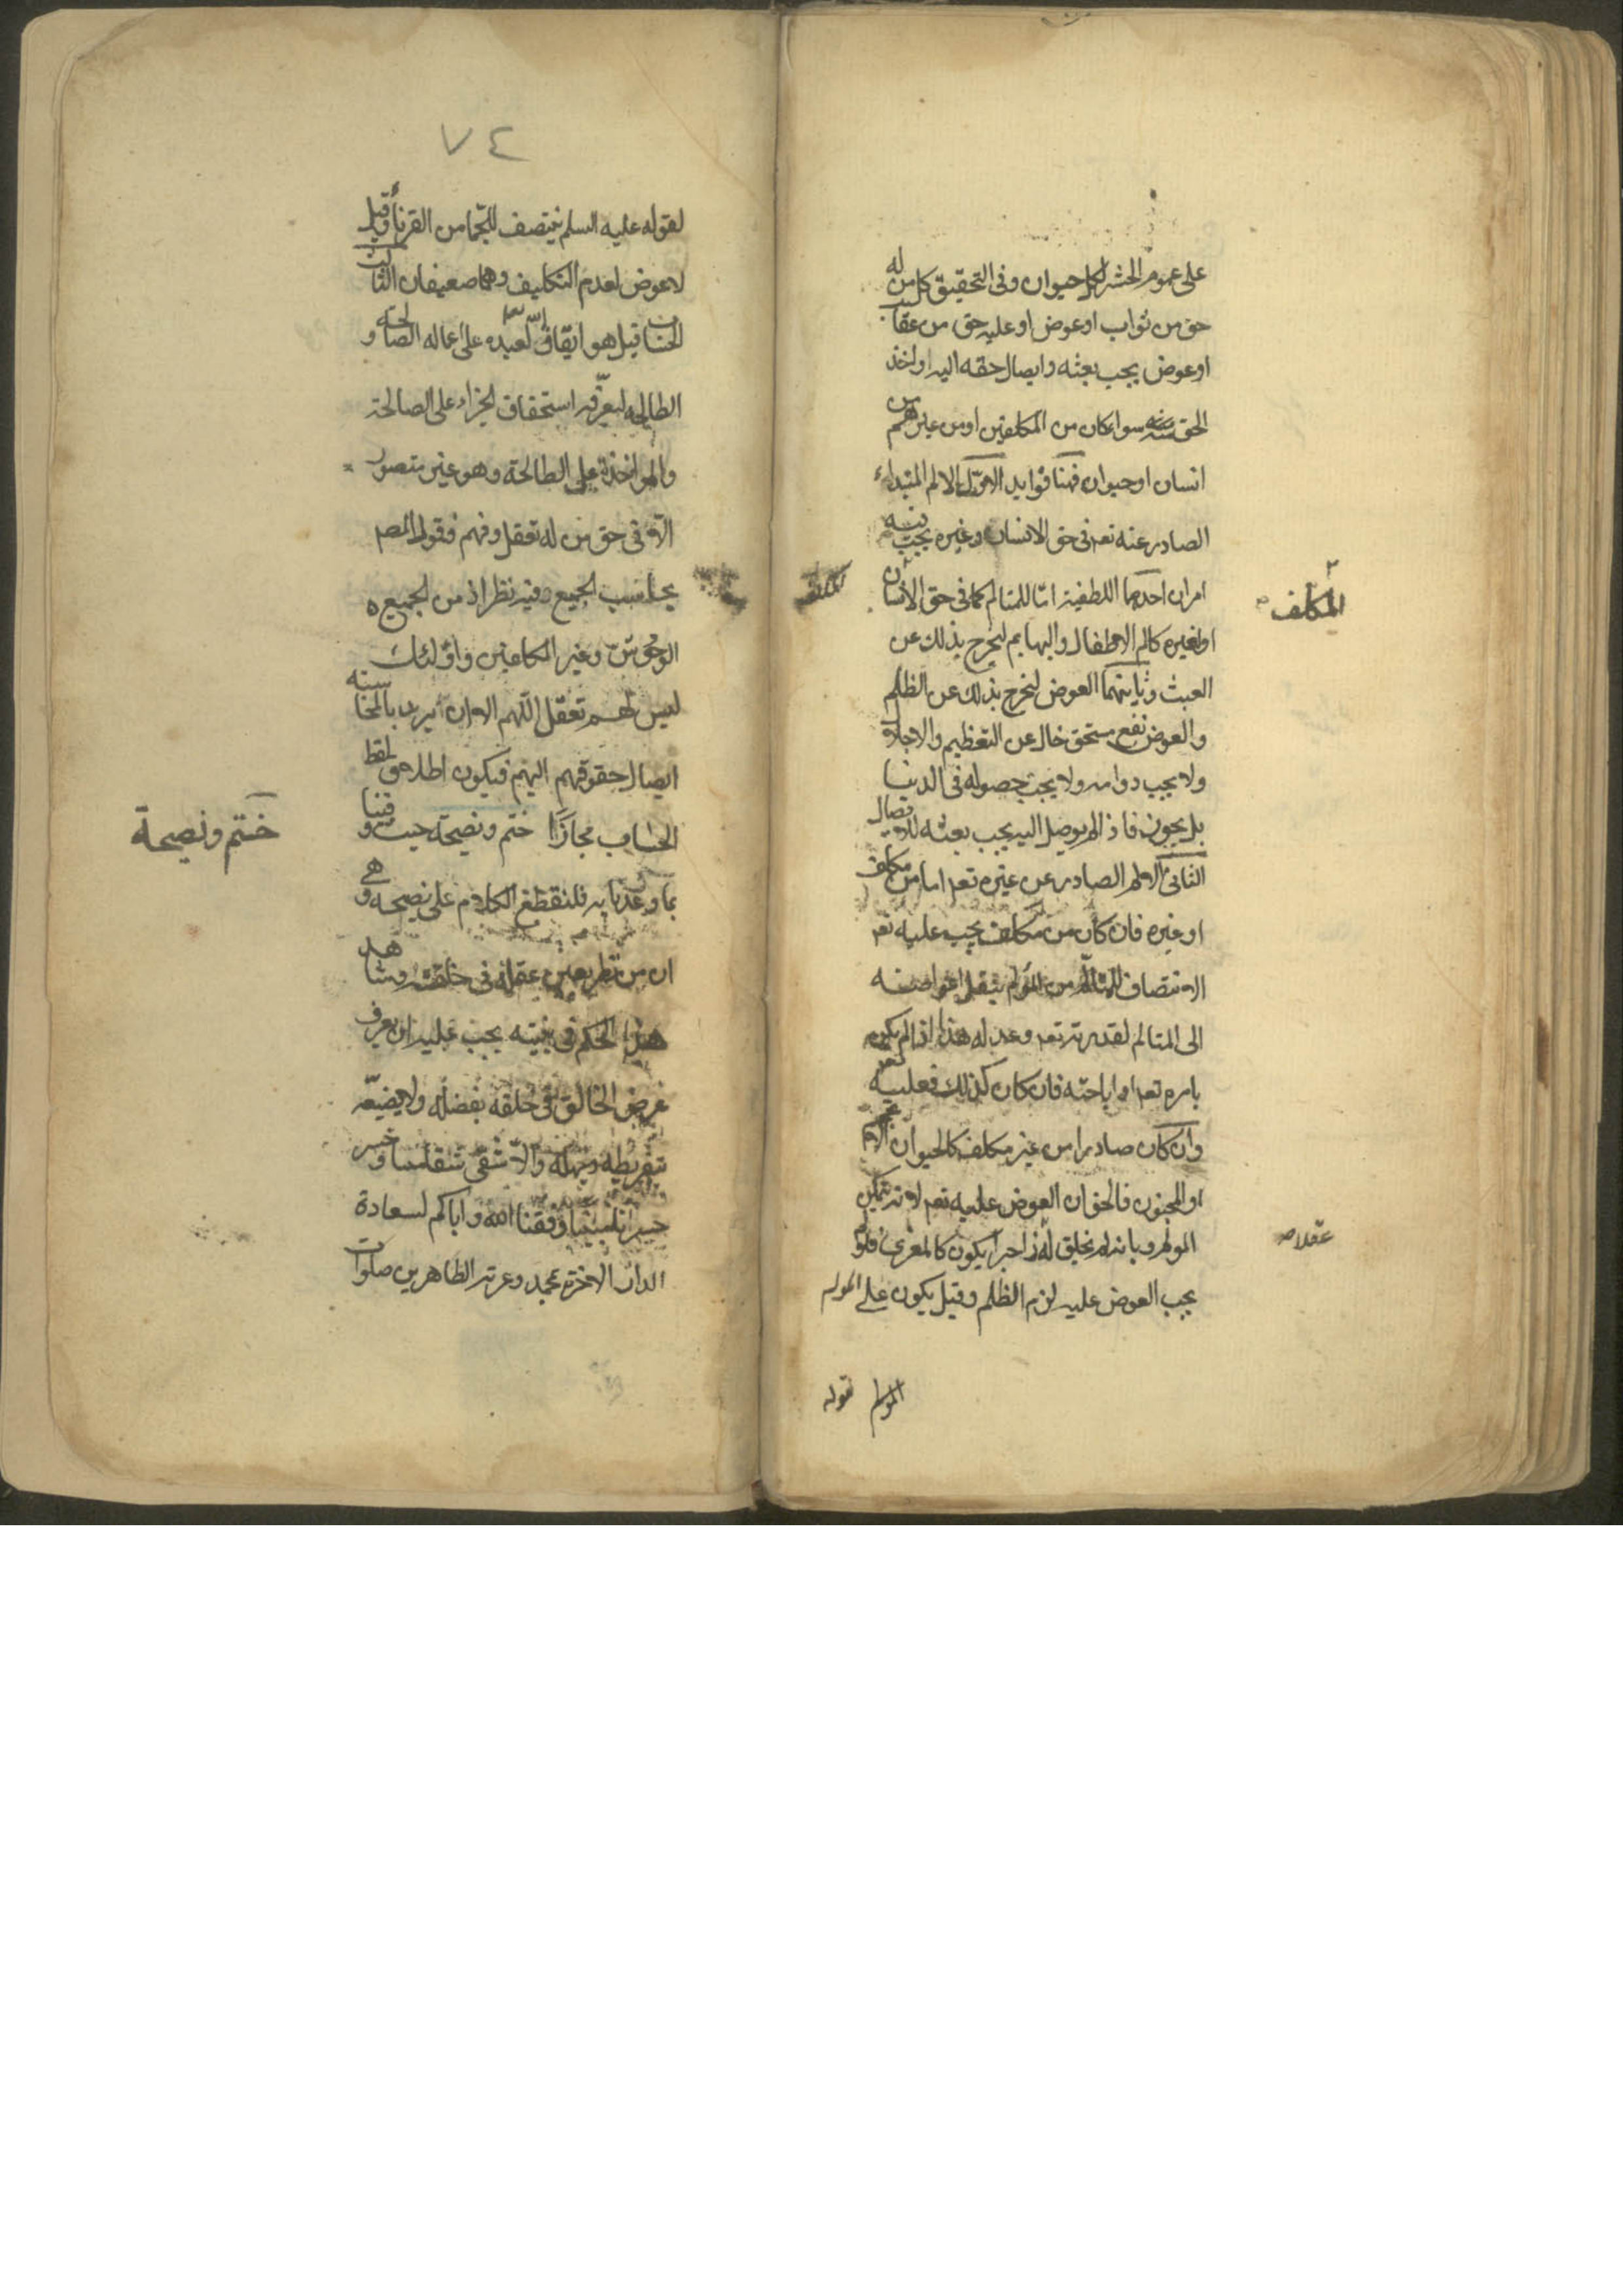 على عموم الحشر لكل حيوان وفى التحقيق كل من له
حق من ثواب او عوض او عليه حق من عقاب
او عوض يجب بعثه وايصال حقه اليه او اخذ
الحق منه سواء كان من المكلفين او من غيرهم من
انسان او حيوان فهنا فوايد الاول الالم المبتداء
الصادر عنه تعه فى حق الانسان وغيره يجب فيه
امران احدهما اللطفية امّا للمتالم كما فى حق الانسان
المكلف
او لغيره كالم الاطفال والبهايم ليخرج بذلك عن
العبث وثانيتهما العوض ليخرج بذلك عن الظلم
والعوض نفع مستحق خال عن التعظيم والاجلال
ولا يجب دوامه ولا يجب حصوله فى الدنيا
بل يجوز فاذا لم يوصل اليه يجب بعثه للايصال
الثانى الالم الصادر عن غيره تعه اما من مكلف
او غيره فان كان من مكلف يجب عليه تعه
الانتصاف للمتالم من المؤلم بنقل اعواضه
الى المتالم لقدرته تعه وعدله هذا اذا لم يكن
بامره تعه او اباحته فان كان كذلك فعليه تعه
وان كان صادرا من غير مكلف كالحيوان العجم
او المجنون فالحق ان العوض عليه تعه لانه تمكين
المولم وبانه لم يخلق له زاجرا يكون كالمغرى فلو لم
عقلا
يجب العوض عليه لزم الظلم وقيل يكون على المولم
المولم لقوله
٧٤
لقوله عليه السلم ينتصف للجّما من القرنا وقيل
لا عوض لعدم التكليف وهما ضعيفان الثالث
الحساب قيل هو ايقاف الله تعه لعبده على اعماله الصالحة و
الطالحه ليعرّفه استحقاق الجزاء على الصالحة
والمواخذة على الطالحة وهو غير متصور
الّا فى حق من له تعقل وفهم فقول المصه
يحاسب الجميع فيه نظر اذ من الجميع
الوحوش وغير المكلفين واولئك
ليس لهم تعقل اللّهم الا ان يريد بالمحاسبه
ايصال حقوقهم اليهم فيكون اطلاق لفظ
الحساب مجازًا ختم ونصيحة حيث وفينا
ختم ونصيحة
بما وعدنا به فلنقطع الكلام على نصيحه وهى
ان من نظر بعين عقله فى خلقته وشاهد
هذا الحكم فى بنيته يجب عليه ان يعرف
غرض الخالق فى خلقه بفضله ولا يضيّعه
بتفريطه وجهله والّا شقى شقاء وخسر
خسرانا مبينا وفقنا الله واياكم لسعادة
الدار الاخرة بمحمد وعترته الطاهرين صلوات